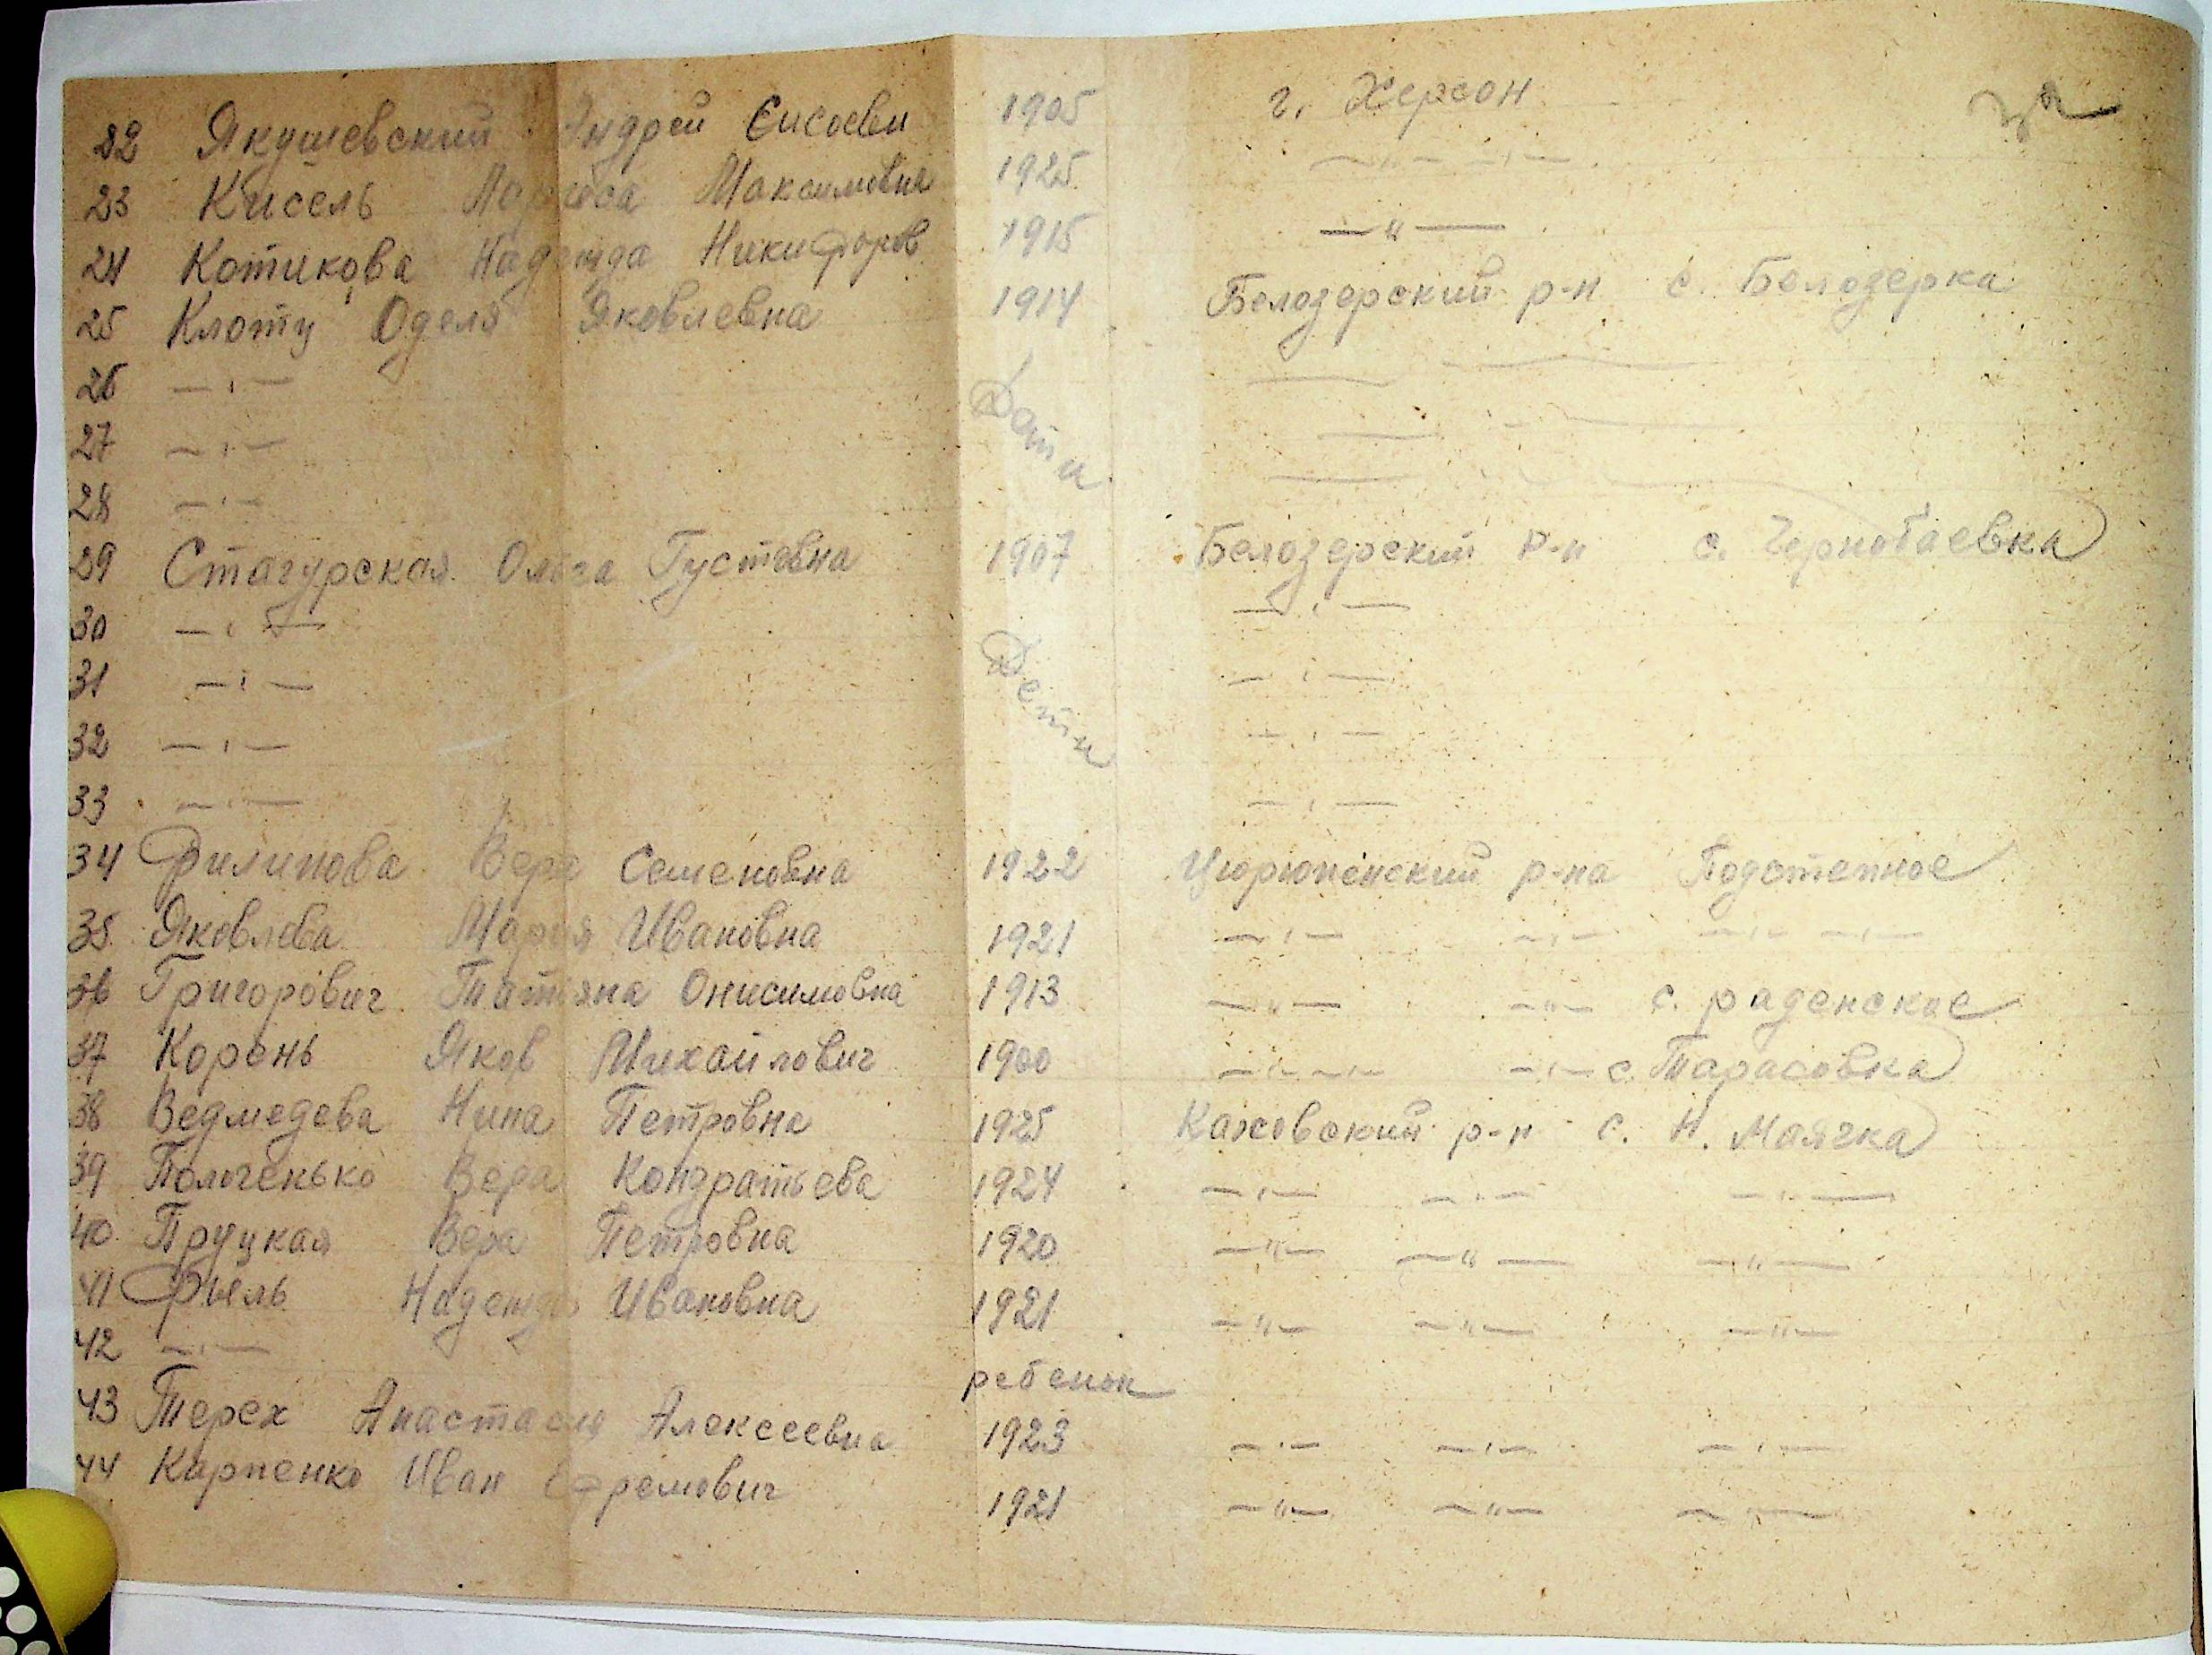 22 Якушевский Андрей Єисоеви 1905 г. Херсон
23 Кисель Лариса Максимовна 1925 — " — — " —
24 Котикова Надежда Никифоров 1915 — " —
25 Клоту Оделя Яковлевна 1914 Белозерский р-н с. Белозерка
26 — " —
27 — " — Дети
28 — " —
29 Стагурская Ольга Густавна 1907 Белозерский р-н с. Чернобаевка
30 — " — — " —
31 — " — Дети — " —
32 — " — — " —
33 — " — — " —
34 Филипова Вера Семеновна 1922 Цюрюпенский р-на Подстепное
35 Яковлева Мария Ивановна 1921 — " — — " — — " — — " —
36 Григорович Татьяна Онисимовна 1913 — " — — " — с. раденское
37 Корень Яков Михайлович 1900 — " — — " — — " — с. Тарасовка
38 Ведмедева Нина Петровна 1925 Каховский р-н с. Н. Маячка
39 Полоченько Вера Кондратьева 1924 — " — — " — — " —
40 Пруцкая Вера Петровна 1920 — " — — " — — " —
41 Фыль Надежда Ивановна 1921 — " — — " — — " —
42 — " — ребенок
43 Терех Анастасия Алексеевна 1923 — " — — " — — " —
44 Карпенко Иван Ефремович 1921 — " — — " — — " —